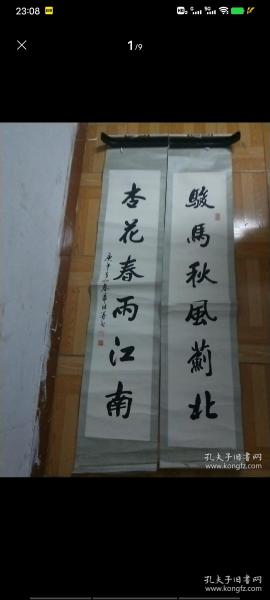 23:08
1/9
駿馬秋風薊北
杏花春雨江南
孔夫子旧书网
www.kongfz.com
孔夫子旧书网
www.kongfz.com